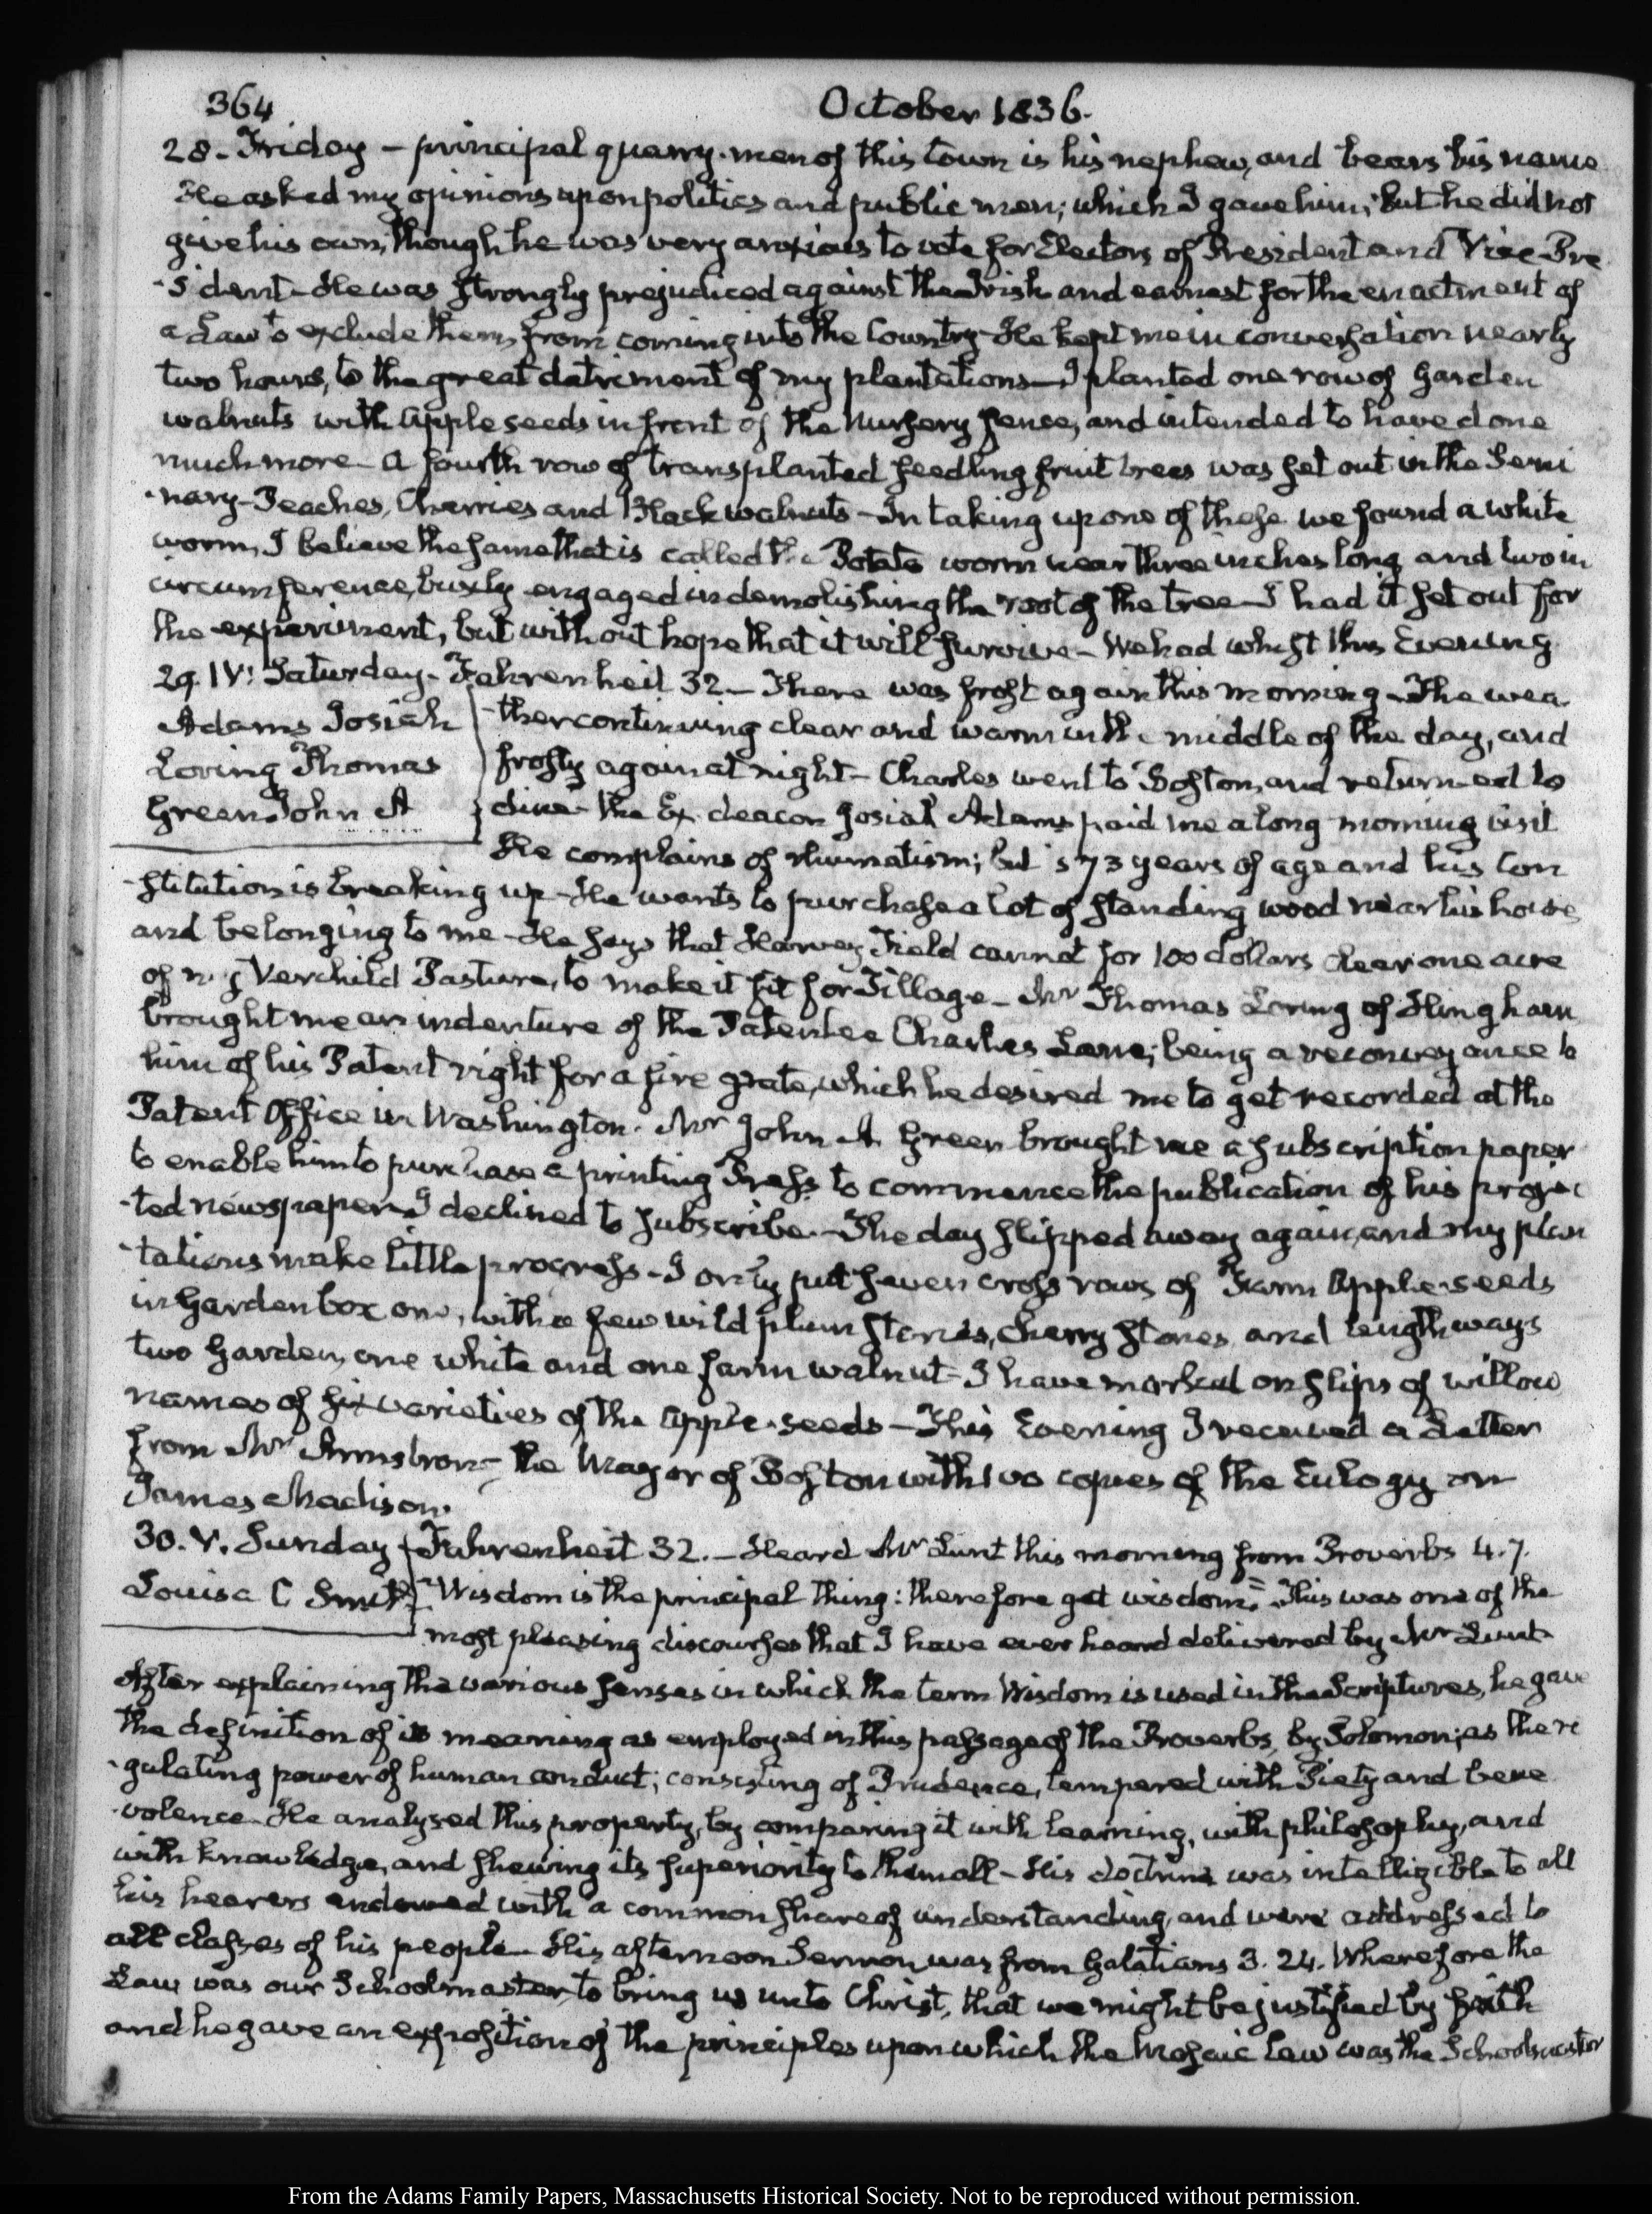 364
October 1836.
28. Friday – principal quarry-men of this town is his nephew, and bears his name
He asked my opinions upon politics and public men; which I gave him; but he did not
give his own, though he was very anxious to vote for Electors of President and Vice-Pre
-sident – He was strongly prejudiced against the Irish and earnest for the enactment of
a Law to exclude them, from coming into the Country – He kept me in conversation nearly
two hours, to the great detriment of my plantations – I planted one row of Garden
walnuts with apple seeds in front of the Nursery fence, and intended to have done
much more – a fourth row of transplanted seedling fruit trees was set out in the Semi
-nary – Peaches, Cherries and Black walnuts – In taking up one of these we found a white
worm, I believe the same that is called the Potato worm near three inches long and two in
circumference, busily engaged in demolishing the root of the tree – I had it set out for
the experiment, but without hope that it will survive – We had whist this Evening
29. IV: Saturday – Fahrenheit 32 – There was frost again this morning – The wea-
Adams Josiah
Loring Thomas
Green John A
-ther continuing clear and warm in the middle of the day, and
frosty again at night – Charles went to Boston, and returned to
dine – the Ex deacon Josiah Adams paid me a long morning visit
He complains of rhumatism; but is 73 years of age and his con
-stitution is breaking up – He wants to purchase a lot of standing wood near his house
and belonging to me – He says that Harvey Field cannot for 100 dollars clear one acre
of my Verchild Pasture, to make it fit for Tillage – Mr Thomas Loring of Hingham
brought me an indenture of the Patentee Charles Lane; being a reconveyance to
him of his Patent right for a fire grate, which he desired me to get recorded at the
Patent Office in Washington. Mr John A. Green brought me a subscription paper
to enable him to purchase a printing Press to commence the publication of his projec
-ted newspaper – I declined to subscribe. – The day slipped away again, and my plan
-tations make little progress – I only put seven cross rows of Farm Apple-seeds
in Garden box one, with a few wild plum stones, cherry stones and lengthways
two Garden, one white and one farm walnut – I have marked on slips of willow
names of six varieties of the Apple-seeds – This Evening I received a Letter
from Mr Armstrong the Mayor of Boston with two copies of the Eulogy on
James Madison.
30. V. Sunday
Louisa C Smith
Fahrenheit 32. – Heard Mr Lunt this morning from Proverbs 4.7.
"Wisdom is the principal thing: therefore get wisdom." This was one of the
most pleasing discourses that I have ever heard delivered by Mr Lunt
After explaining the various senses in which the term Wisdom is used in the Scriptures, he gave
the definition of its meaning as employed in this passage of the Proverbs, by Solomon; as the re
-gulating power of human conduct; consisting of Prudence, tempered with Piety and bene
-volence – He analysed this property, by comparing it with learning, with philosophy, and
with knowledge, and shewing its superiority to them all – His doctrine was intelligible to all
his hearers endowed with a common share of understanding, and were addressed to
all classes of his people – His afternoon Sermon was from Galatians 3. 24. Wherefore the
Law was our Schoolmaster, to bring us unto Christ, that we might be justified by faith
and he gave an exposition of the principles upon which the Mosaic Law was the Schoolmaster
From the Adams Family Papers, Massachusetts Historical Society. Not to be reproduced without permission.